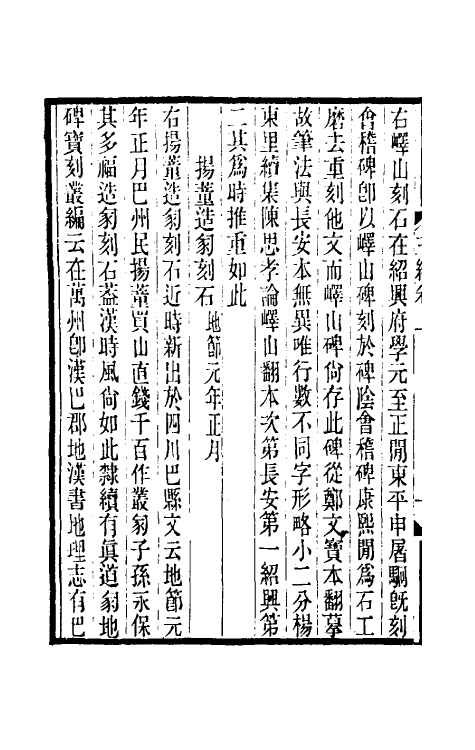 右嶧山刻石在紹興府學元至正閒東平申屠駉旣刻
會稽碑卽以嶧山碑刻於碑陰會稽碑康熙閒爲石工
磨去重刻他文而嶧山碑尙存此碑從鄭文寶本翻摹
故筆法與長安本無異唯行數不同字形略小二分楊
東里續集陳思孝論嶧山翻本次第長安第一紹興第
二其爲時推重如此
揚葷造冢刻石地節元年正月
右揚葷造冢刻石近時新出於四川巴縣文云地節元
年正月巴州民揚葷買山直錢千百作業冢子孫永保
其多福造冢刻石葢漢時風尙如此隸續有眞道冢地
碑寶刻叢編云在萬州卽漢巴郡地漢書地理志有巴